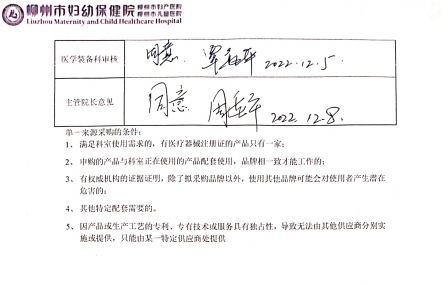 柳州市妇幼保健院 柳州市妇产医院
柳州市儿童医院
Liuzhou Maternity and Child Healthcare Hospital
医学装备科审核 同意 2022.12.5
主管院长意见 同意 2022.12.8.
单一来源采购的条件:
1、满足科室使用需求的,有医疗器械注册证的产品只有一家;
2、申购的产品与科室正在使用的产品配套使用,品牌相一致才能工作的;
3、有权威机构的证据证明,除了拟采购品牌以外,使用其他品牌可能会对使用者产生潜在
危害的;
4、其他特定配套需要的。
5、因产品或生产工艺的专利、专有技术或服务具有独占性,导致无法由其他供应商分别实
施或提供,只能由某一特定供应商处提供